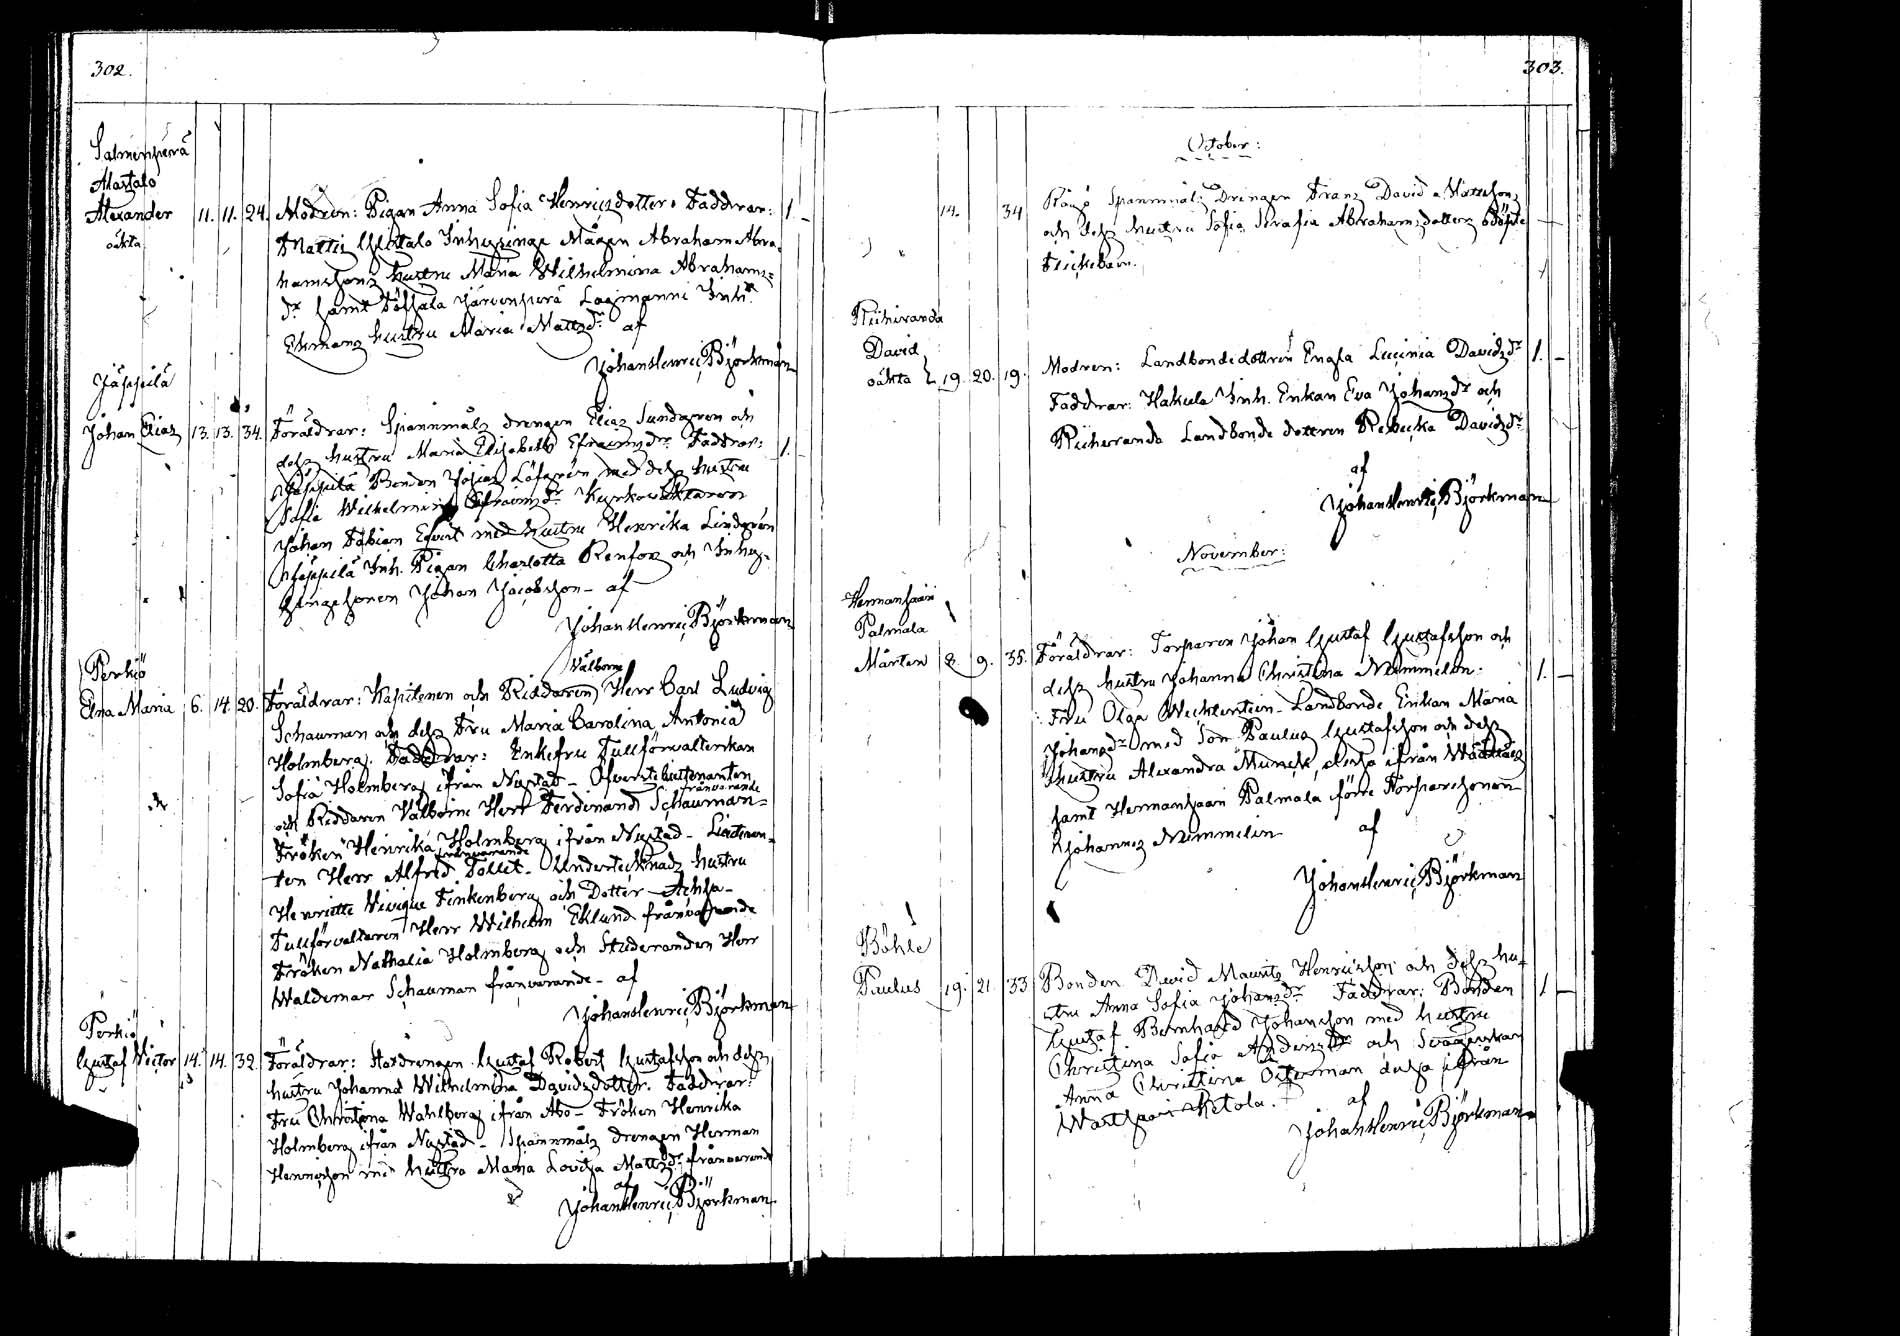 302.
Salmenperä
Alastalo
Alexander 11. 11. 24. Modren: Pigan Anna Sofia Henricsdotter. Faddrar: 1 -
oäkta
Inhysinge Mågen Abraham Abra-
hamssons hustru Maria Wilhelmina Abrahams-
dr samt Järvenperä Lagmanni Inh.
Ekmans hustru Maria Mattsdr af
Johan Henric Björkman
Jäppilä
Johan Elias 13. 13. 34. Föräldrar: Spannmåls drengen Elias Sundgren och
dess hustru Maria Elisabeth Efraimsdr Faddrar: 1. -
Jäppilä Bonden Josias Löfgrén med dess hustru
Sofia Wilhelmina Efraimsdr
Johan Fabian Eqvist med hustru Henrika Lindgrén
Jäppilä Inh. Pigan Charlotta Renfors och Inhys-
singesonen Johan Jacobsson - af
Johan Henric Björkman
Perkiö
Välborne
Elna Maria 6. 14. 20. Föräldrar: Kapitenen och Riddaren Herr Carl Ludvig
Schauman och dess Fru Maria Carolina Antonia
Holmberg. Faddrar: Enkefru Tullförvalterskan
Sofia Holmberg ifrån Nystad - Öfverstelieutenanten
frånvarande
och Riddaren Välborne Herr Ferdinand Schauman -
Fröken Henrika Holmberg ifrån Nystad - Lieutenan-
frånvarande
ten Herr Alfred Tollet - Undertecknads hustru
Henriette Vivique Finkenberg och Dotter
Tullförvaltaren Herr Wilhelm Eklund frånvarande
Fröken Nathalia Holmberg och Studeranden Herr
Waldemar Schauman frånvarande - af
Johan Henric Björkman
Perkiö
Gustaf Victor 14. 14. 32. Föräldrar: Gustaf Robert Gustafsson och dess
hustru Johanna Wilhelmina Davidsdotter. Faddrar:
Fru Christina Wahlberg ifrån Åbo - Fröken Henrika
Holmberg ifrån Nystad - Spannmåls drengen Herman
Henricsson med hustru Maria Lovisa Mattsdr frånvarande
af
Johan Henric Björkman
303.
October:
14. 34 Spannmåls Drengen Frans David Mattsson
och dess hustru Sofia Serafia Abrahamsdotters odöpte -
Flickebarn.
Riihiranda
David
oäkta 19. 20. 19. Modren: Landbondedottren Engla Lucinia Davidsdr 1. -
Faddrar: Hakula Inh. Enkan Eva Johansdr och
Riihiranda Landbonde dottren Rebecka Davidsdr
af
Johan Henric Björkman
November:
Hermansaari
Palmala
Mårten 8. 9. 35. Föräldrar: Torparen Johan Gustaf Gustafsson och
dess hustru Johanna Christina Nummelin. 1. -
Fru Olga - Landbonde Enkan Maria
Johansdr med Son Paulus Gustafsson och dess
hustru Alexandra Munck, dessa ifrån
samt Hermansaari Palmala förre Torparesonen
Johannes Nummelin af
Johan Henric Björkman
Böhle
Paulus 19. 21. 33 Bonden David Mauritz Henricsson och dess hu-
stru Anna Sofia Johansdr Faddrar: Bonden 1 -
Gustaf Bernhard Johansson med hustru
Christina Sofia Andersdr och Svägerskan
Anna Christina Österman dessa ifrån
Wartsaari Ketola. af
Johan Henric Björkman